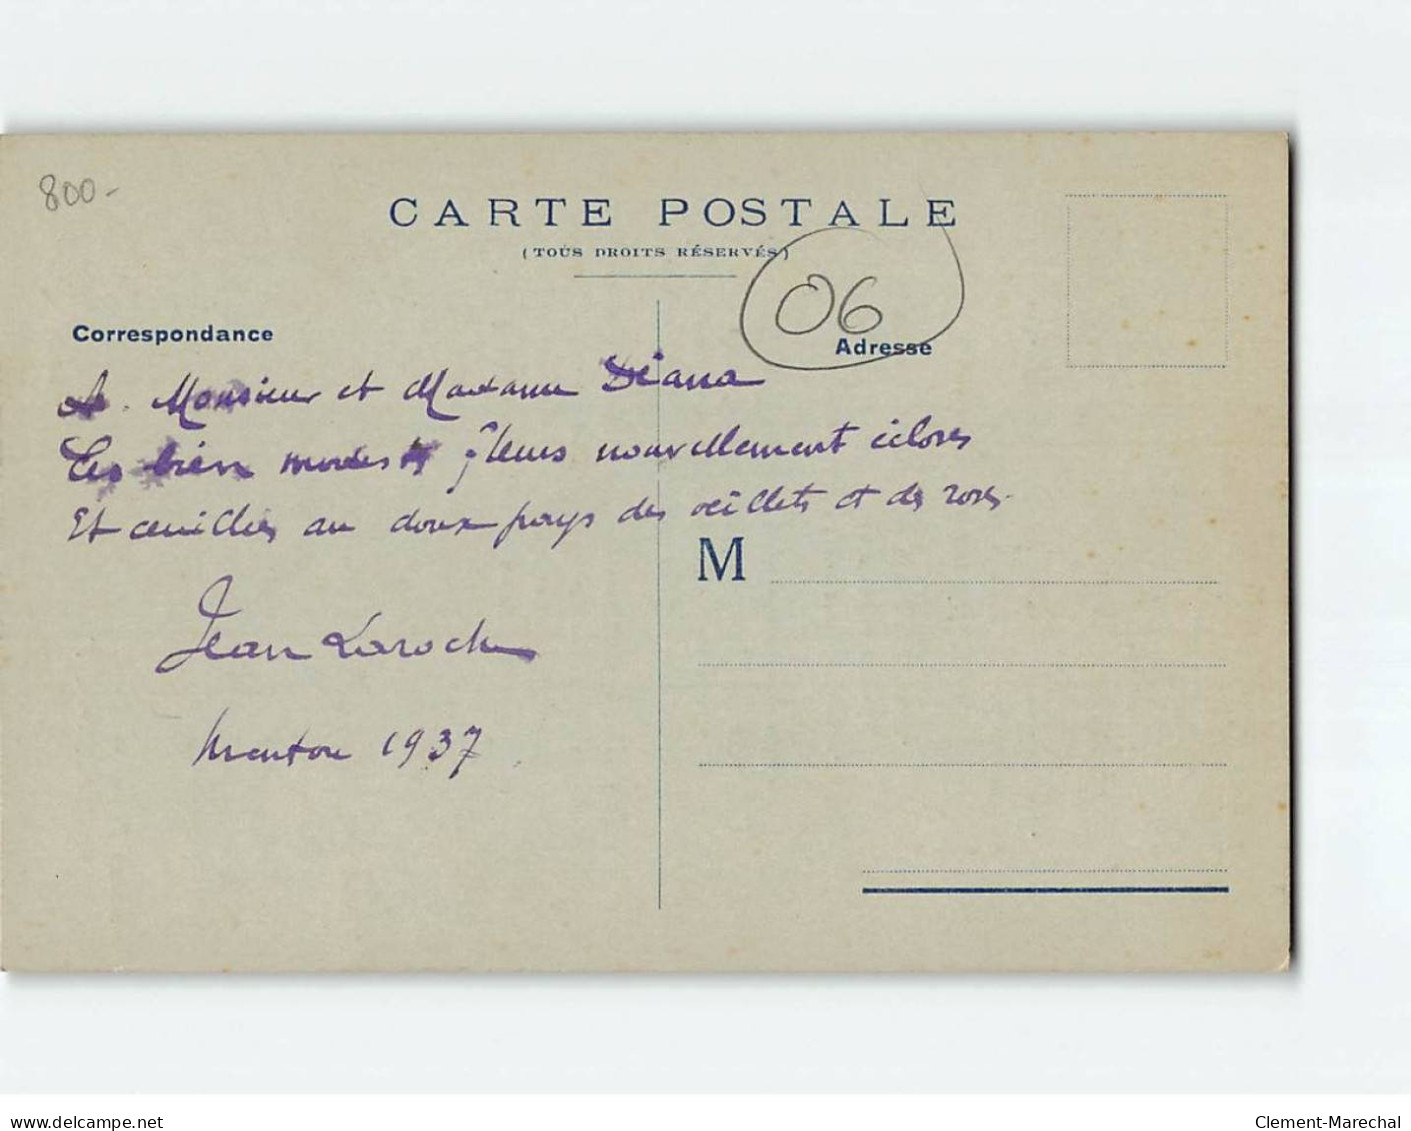 800-
CARTE POSTALE
(TOUS DROITS RÉSERVÉS)
06
Correspondance
Adresse
A Monsieur et Madame Diana
Ces bien modestes fleurs nouvellement écloses
Et cueillies au doux pays des œillets et des roses.
M
Jean Laroche
Menton 1937
www.delcampe.net
Clement-Marechal